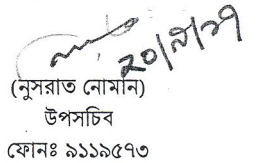 ২০/৯/১৭
(নুসরাত নোমান)
উপসচিব
ফোনঃ ৯১১৯৫৭৩